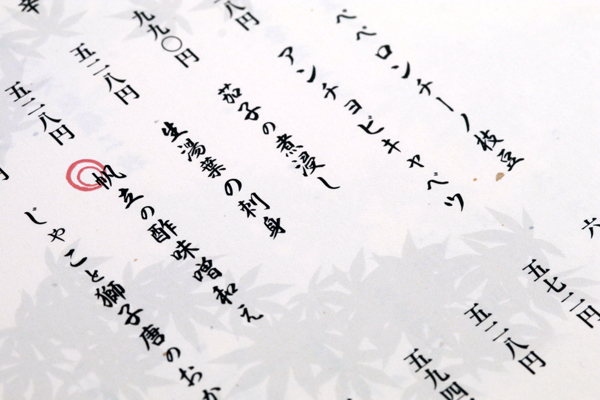 八円
九九〇円
五二八円
五二八円
円
ペペロンチーノ枝豆 六
アンチョビキャベツ 五七二円
茄子の煮浸し 五二八円
生湯葉の刺身 五九四
帆立の酢味噌和え
じゃこと獅子唐のおか